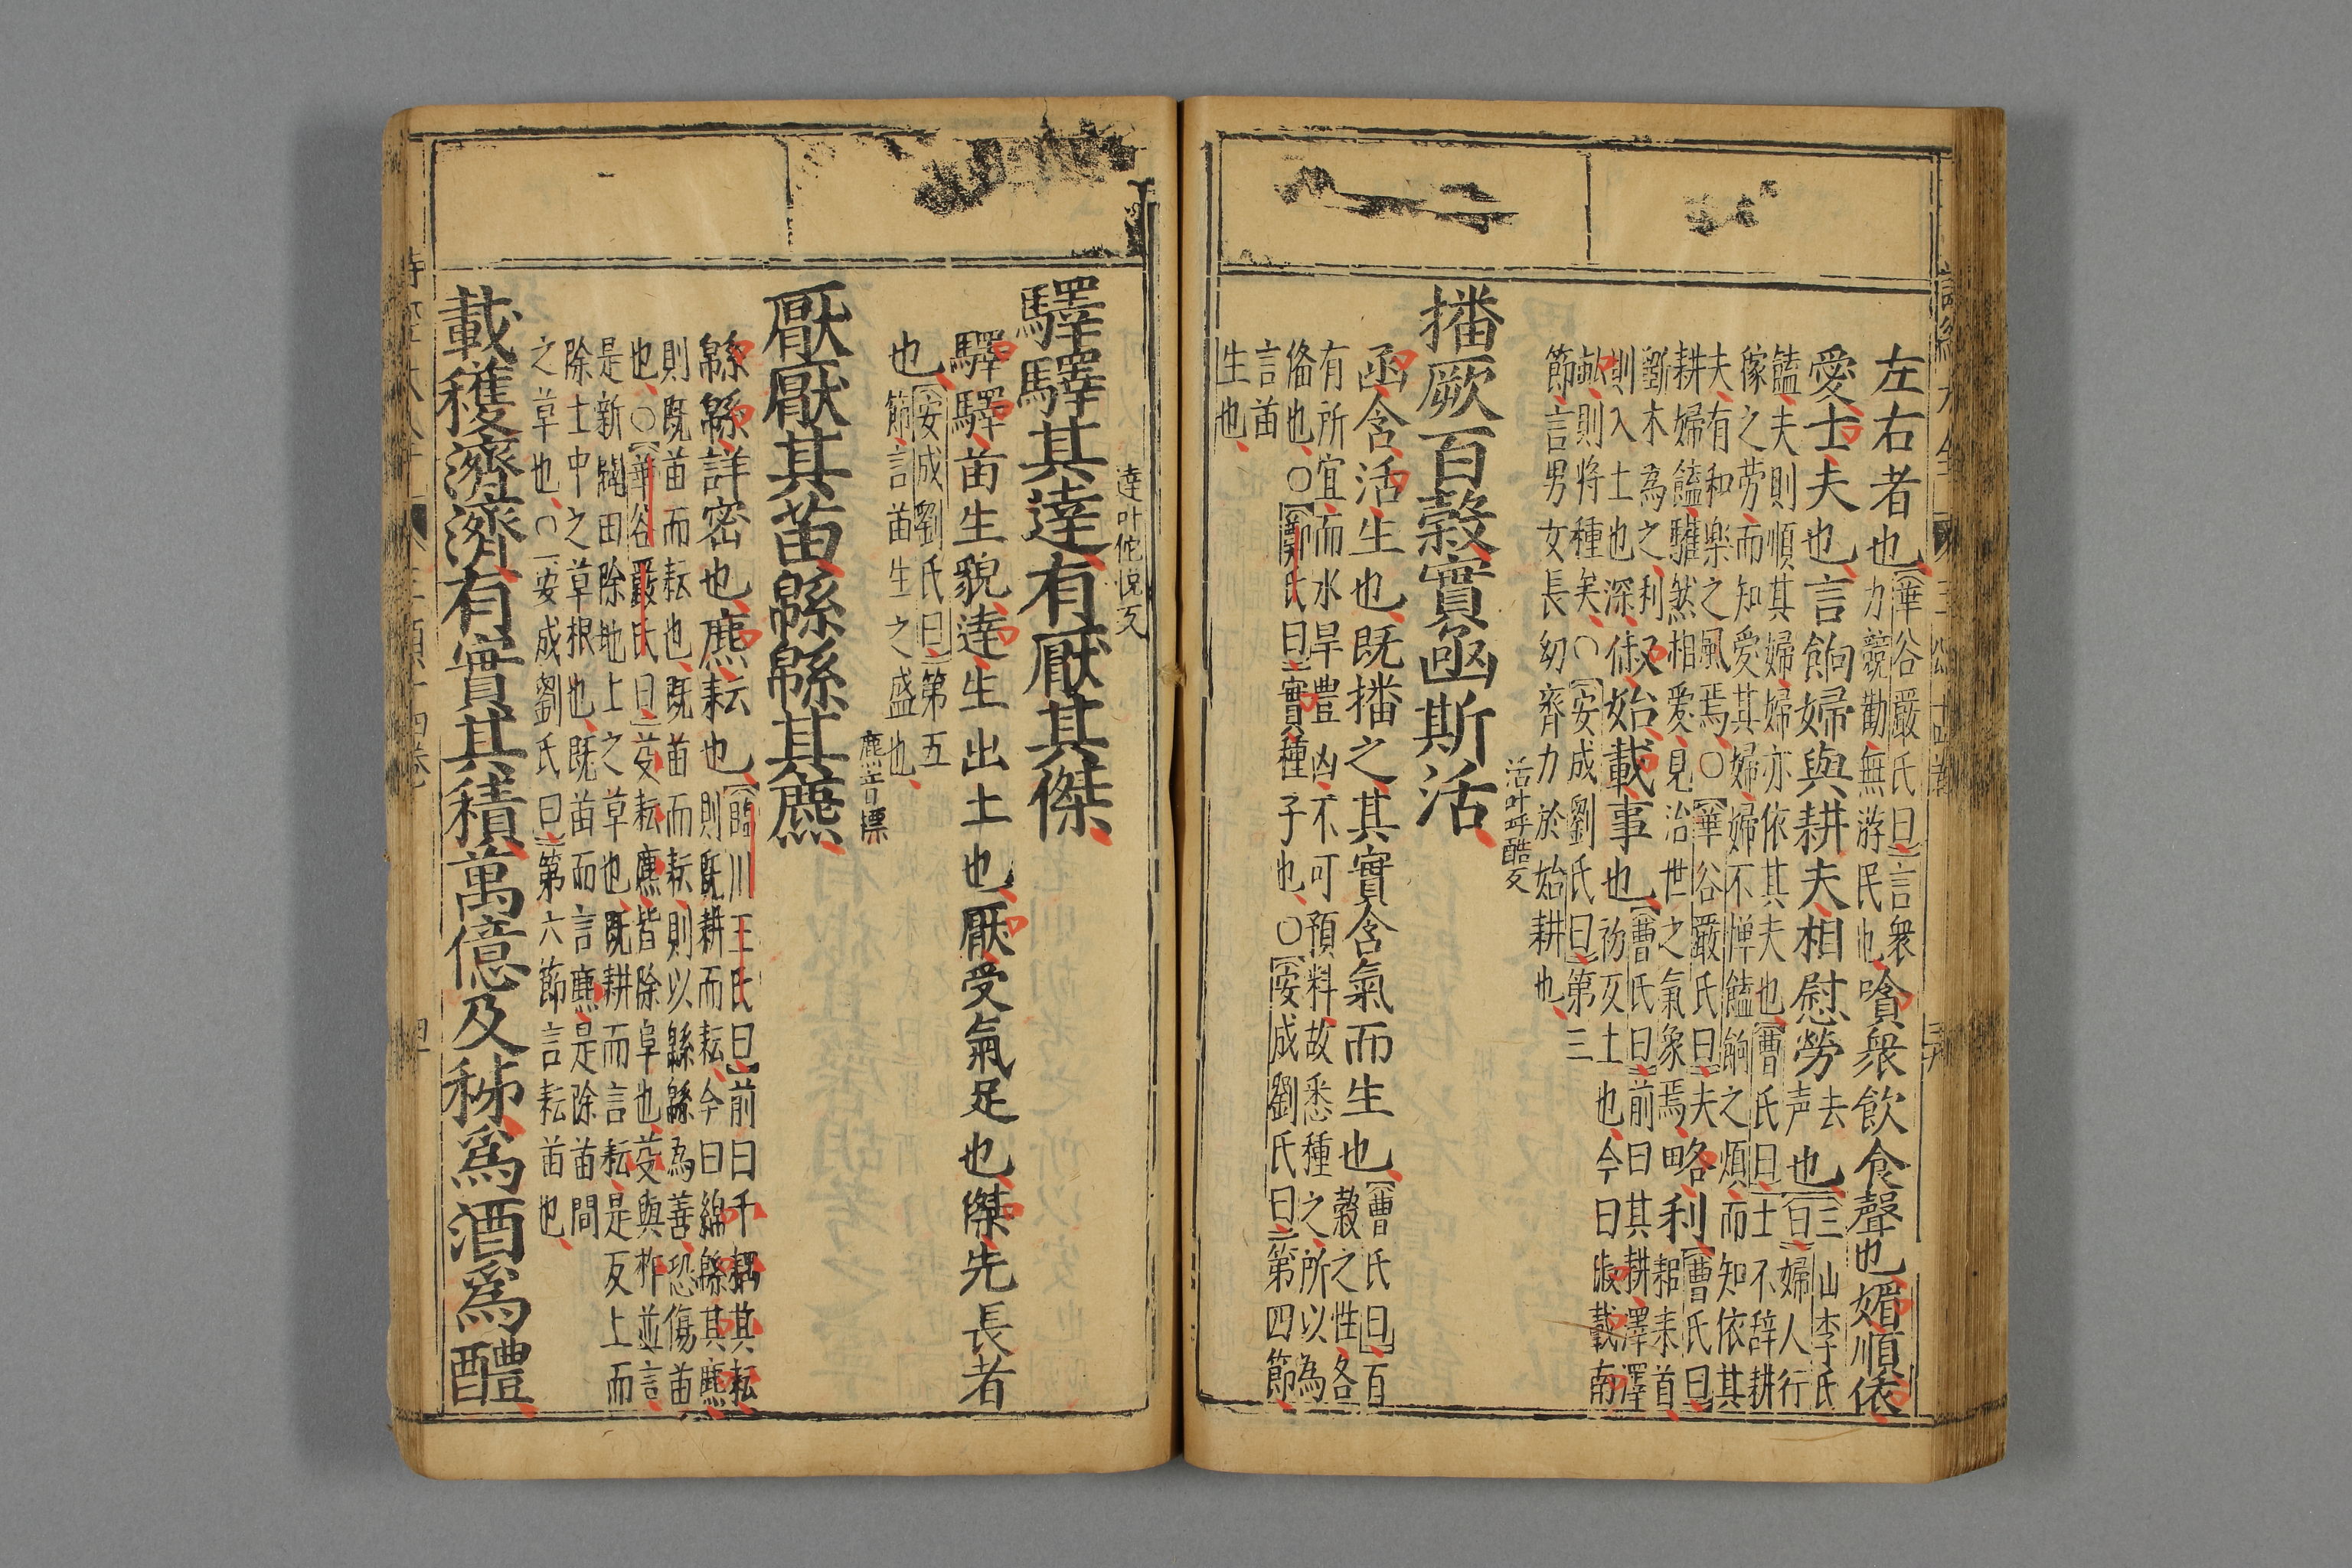 左右者也華谷嚴氏曰言衆
力競勸無游民也嗿衆飲食聲也媚順依
愛士夫也言餉婦與耕夫相慰勞去聲也三山李氏
曰婦人行
饁夫則順其婦婦亦依其夫也曹氏曰士不辞耕
傢之劳而知愛其婦婦不憚饁餉之煩而知依其
夫有和樂之風焉〇華谷嚴氏曰夫
耕婦饁驩然相爱見治世之氣象焉略利曹氏曰
耜耒首
劉木為之利
則入土也深俶始載事也曹氏曰前曰其耕澤澤
初反土也今曰俶載南
畝則将種矣〇安成劉氏曰第三
節言男女長幼齊力於始耕也
播厥百穀實函斯活
活叶呼酷反
函含活生也既播之其實含氣而生也曹氏曰百
穀之性各
有所宜而水旱豊凶不可預料故悉種之所以為
俻也〇鄭氏曰實種子也〇安成劉氏曰第四節
言苗
生也
驛驛其達有厭其傑
達叶佗悅反
驛驛苗生貌達生出土也厭受氣足也傑先長者
也安成劉氏曰第五
節言苗生之盛也
厭厭其苗緜緜其麃
麃音標
緜緜詳密也麃耘也臨川王氏曰前曰千耦其耘
則既耕而耘今曰綿緜其麃
則既苗而耘也既苗而耘則以緜緜為善恐傷苗
也〇華谷嚴氏曰芟耘麃皆除草也芟與柞並言
是新闢田除地上之草也既耕而言耘是反上而
除土中之草根也既苗而言麃是除苗間
之草也〇安成劉氏曰第六節言耘苗也
載穫濟濟有實其積萬億及秭爲酒爲醴